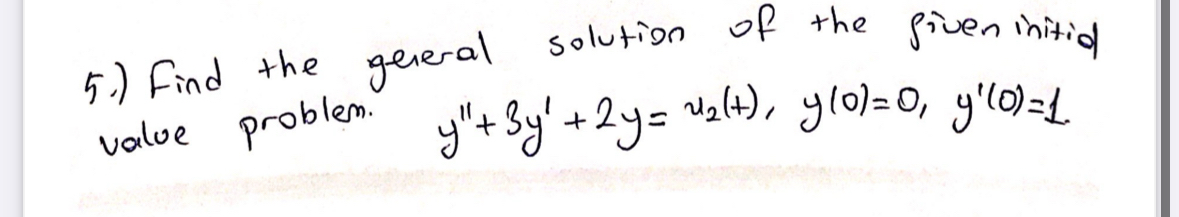 5.) Find the general solution of the given initial
value problem. y''+3y'+2y= u₂(t), y(0)=0, y'(0)=1.